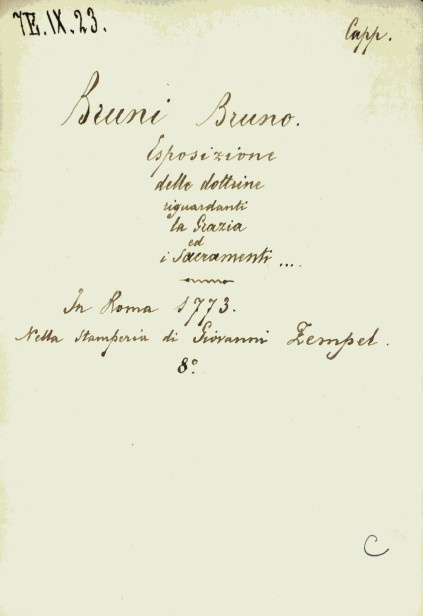 7E.IX.23.
Capp.
Bruni Bruno.
Esposizione
delle dottrine
riguardanti
la Grazia
ed
i Sacramenti ...
In Roma 1773.
Nella Stamperia di Giovanni Zempel.
8°
C